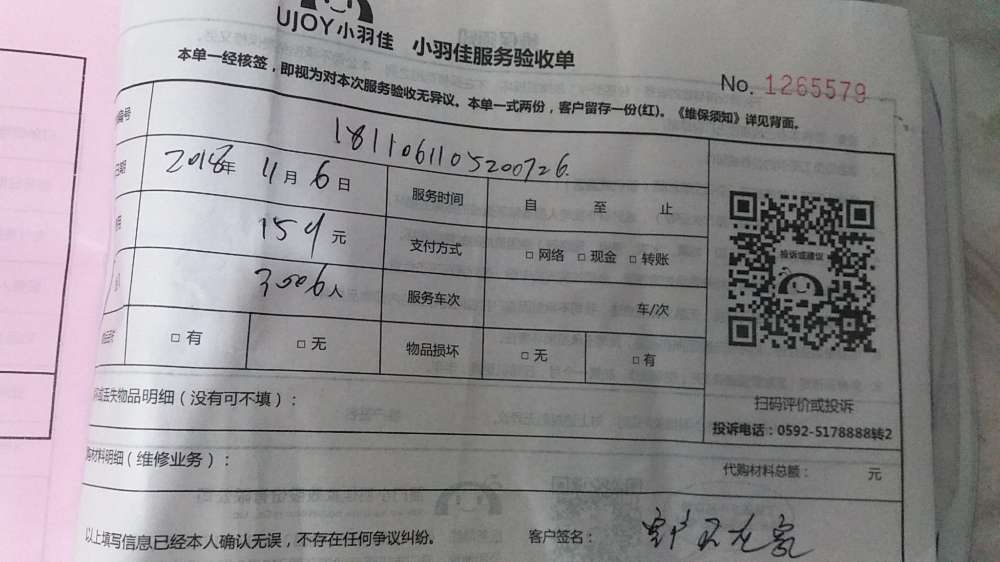 UJOY小羽佳 小羽佳服务验收单
No. 1265579
本单一经核签，即视为对本次服务验收无异议。本单一式两份，客户留存一份(红)。《维保须知》详见背面。
编号 1811061105200726
日期 2018年 11月 6日 服务时间 自 至 止
154元 支付方式 □ 网络 □ 现金 □ 转账
3006人 服务车次 车/次
□ 有 □ 无 物品损坏 □ 无 □ 有
投诉或建议
扫码评价或投诉
投诉电话：0592-5178888转2
或丢失物品明细（没有可不填）：
购材料明细（维修业务）： 代购材料总额： 元
以上填写信息已经本人确认无误，不存在任何争议纠纷。 客户签名：